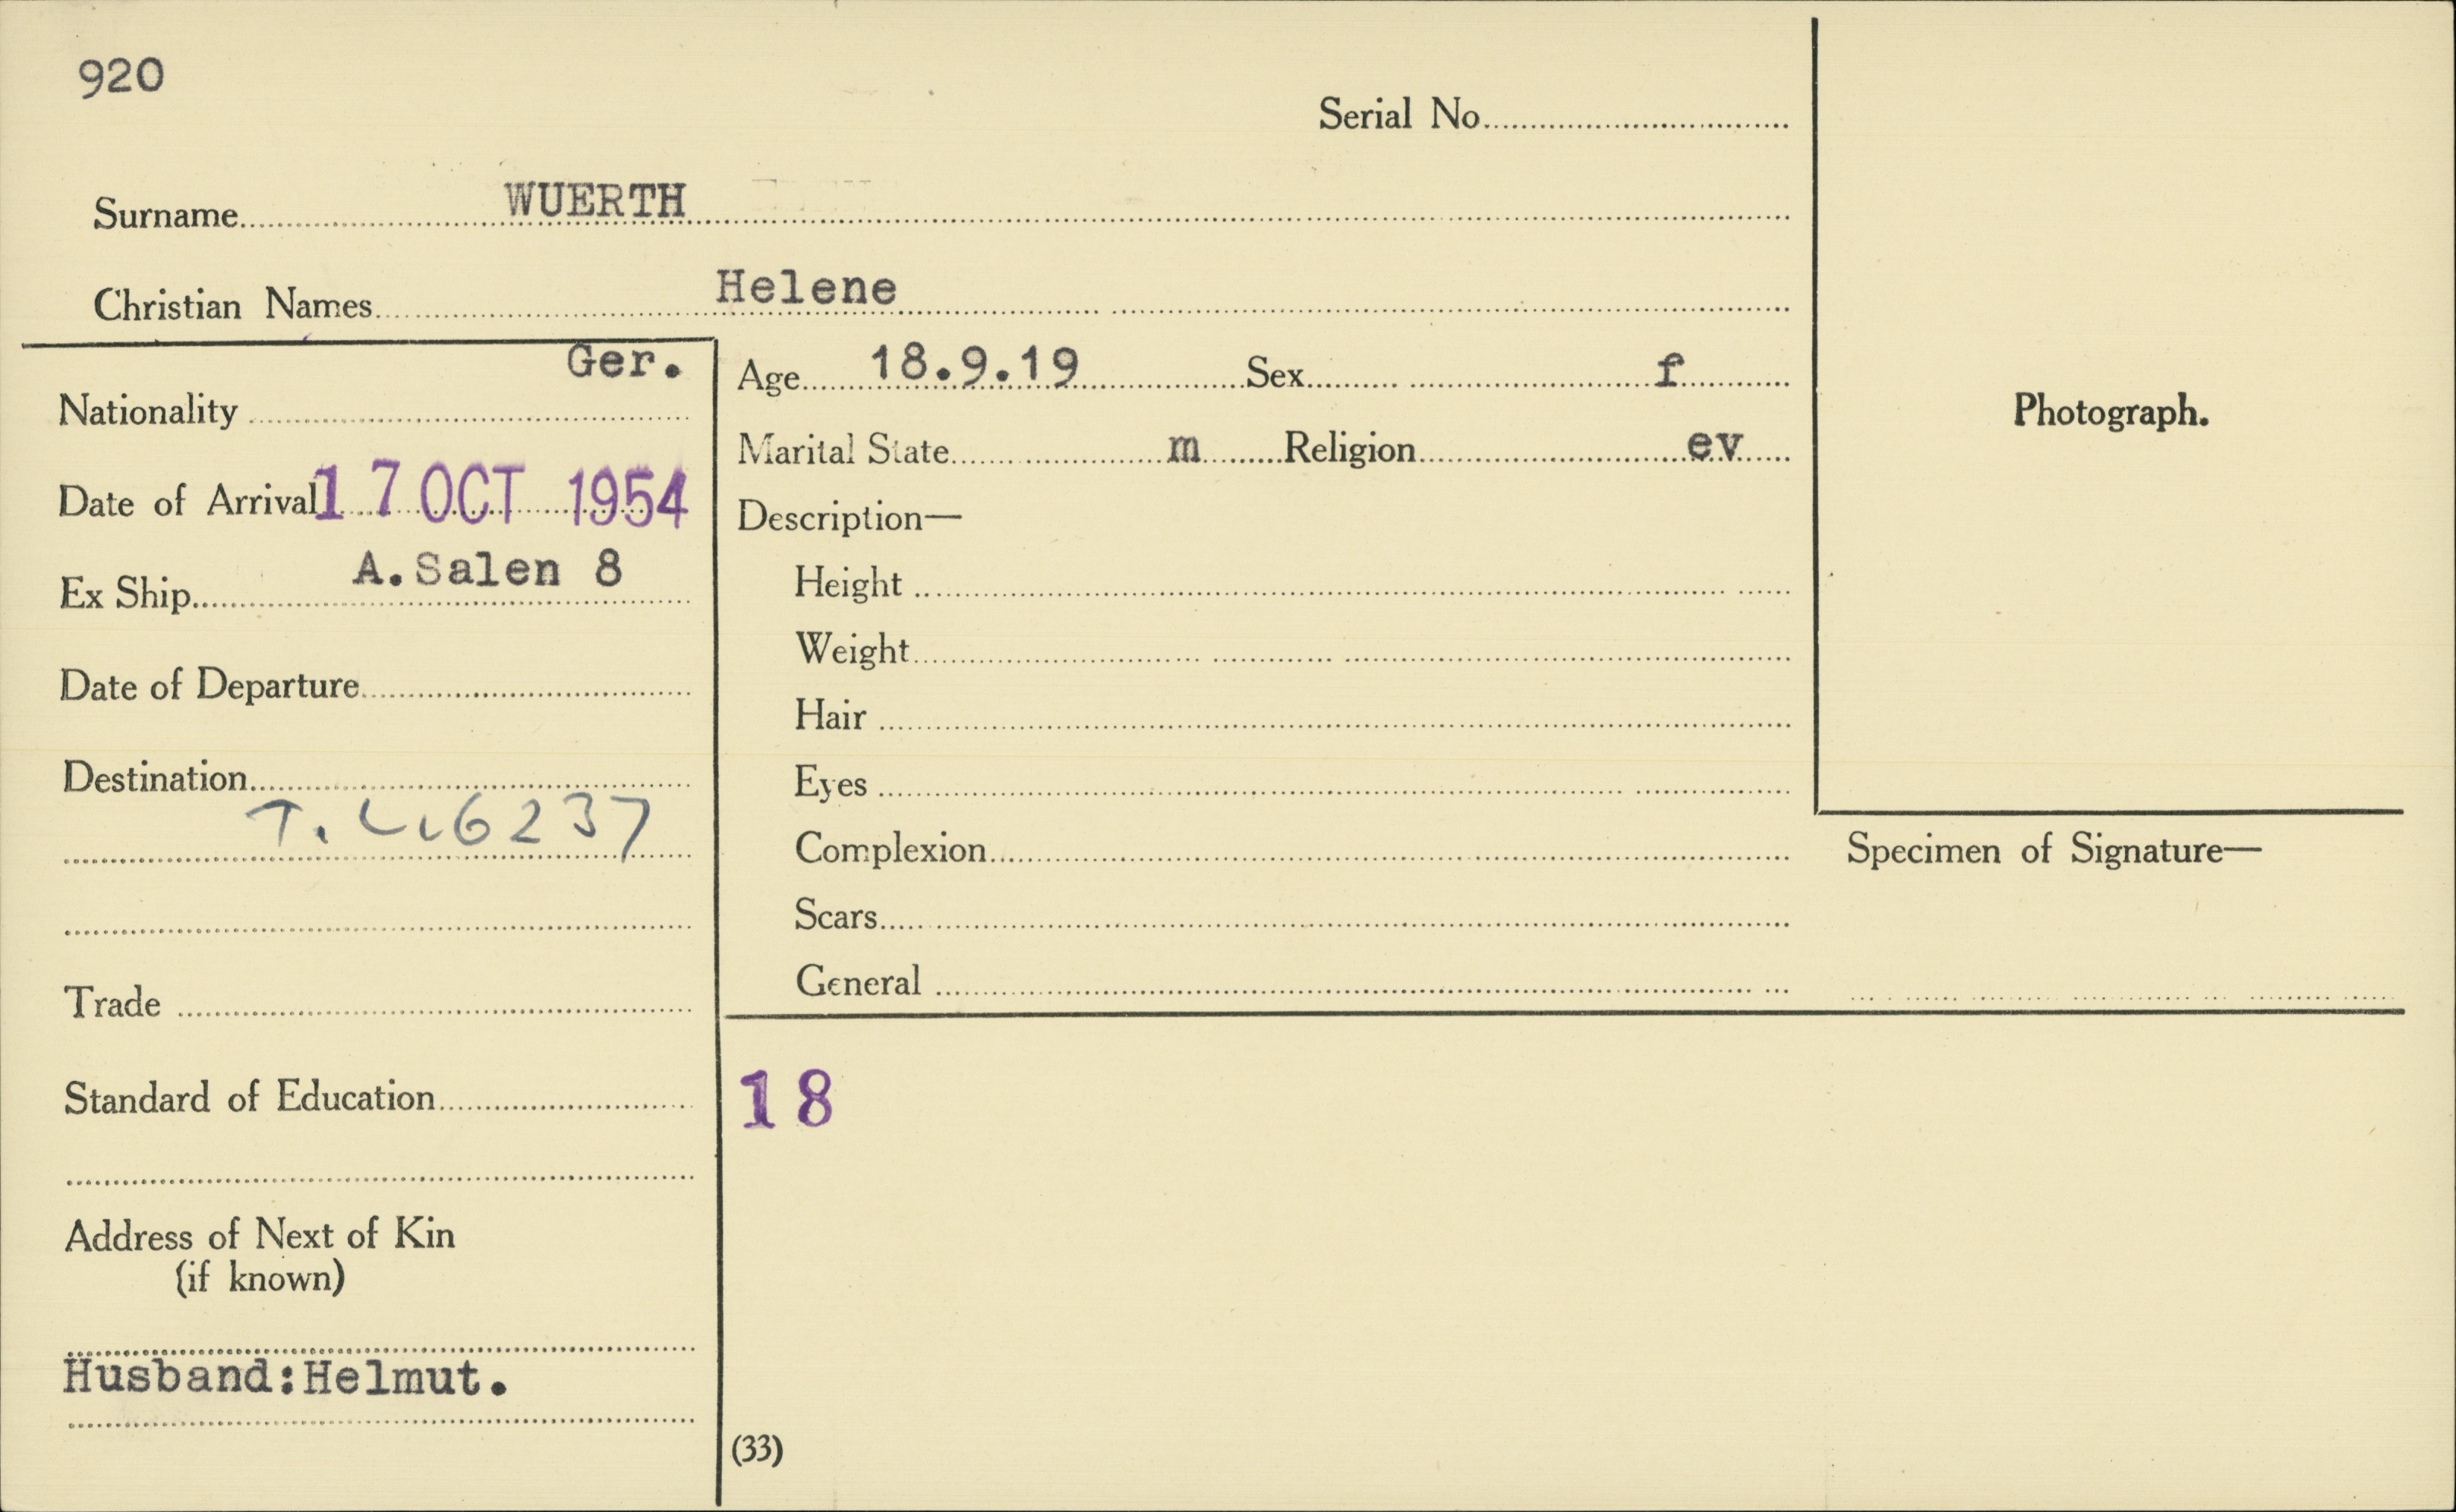 920
Serial No.
Surname WUERTH
Christian Names Helene
Nationality Ger.
Date of Arrival 17 OCT 1954
Ex Ship A.Salen 8
Date of Departure
Destination
T. 6237
Trade
Standard of Education
Address of Next of Kin
(if known)
Husband:Helmut.
Age 18.9.19 Sex f
Marital State m Religion ev
Description—
Height
Weight
Hair
Eyes
Complexion
Scars
General
18
(33)
Photograph.
Specimen of Signature—